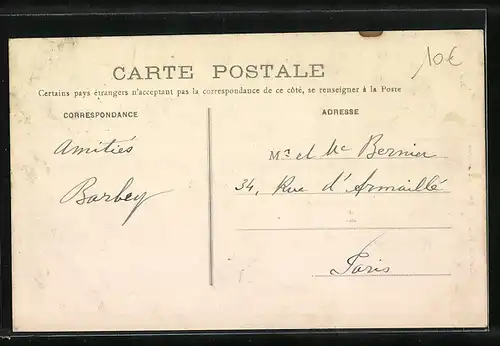 10€
CARTE POSTALE
Certains pays étrangers n'acceptant pas la correspondance de ce côté, se renseigner à la Poste
CORRESPONDANCE
ADRESSE
Amitiés
Barbey
Mr et Me Bernier
34, Rue d'Armaillé
Paris